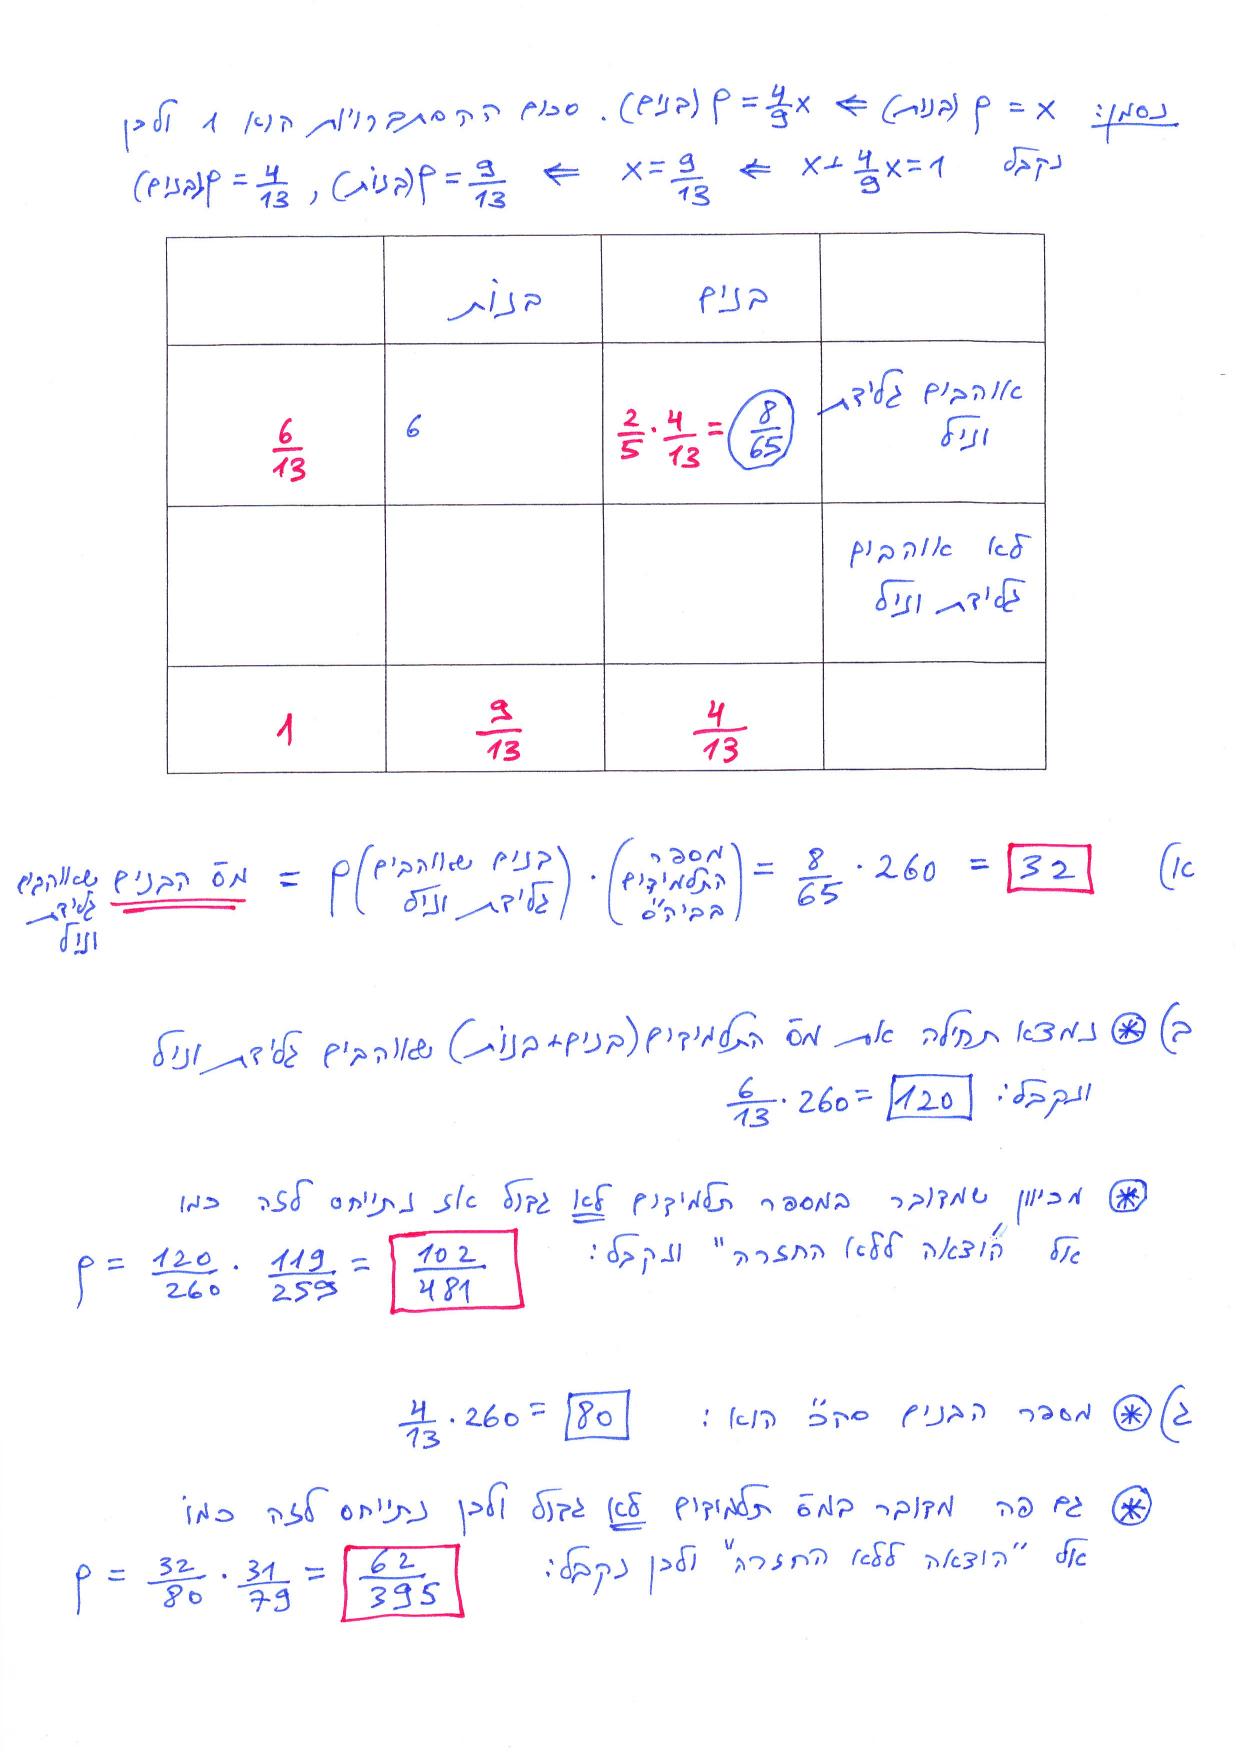 נסמן: P(בנות) = x ⇐ P(בנים) = 4/9x. סכום ההסתברויות הוא 1 ולכן
נקבל x + 4/9x = 1 ⇐ x = 9/13 ⇐ P(בנות) = 9/13, P(בנים) = 4/13
בנים בנות
אוהבים גלידת וניל 2/5 · 4/13 = 8/65 6 6/13
לא אוהבים גלידת וניל
4/13 9/13 1
א) מס' הבנים שאוהבים גלידת וניל = P(בנים שאוהבים גלידת וניל) · (מספר התלמידים בביה"ס) = 8/65 · 260 = 32
ב) * נמצא תחילה את מס' התלמידים (בנים+בנות) שאוהבים גלידת וניל
ונקבל: 6/13 · 260 = 120
* מכיוון שמדובר במספר תלמידים לא גדול אז נתייחס לזה כמו
אל "הוצאה ללא החזרה" ונקבל: P = 120/260 · 119/259 = 102/481
ג) * מספר הבנים סה"כ הוא: 4/13 · 260 = 80
* גם פה מדובר במס' תלמידים לא גדול ולכן נתייחס לזה כמו
אל "הוצאה ללא החזרה" ולכן נקבל: P = 32/80 · 31/79 = 62/395